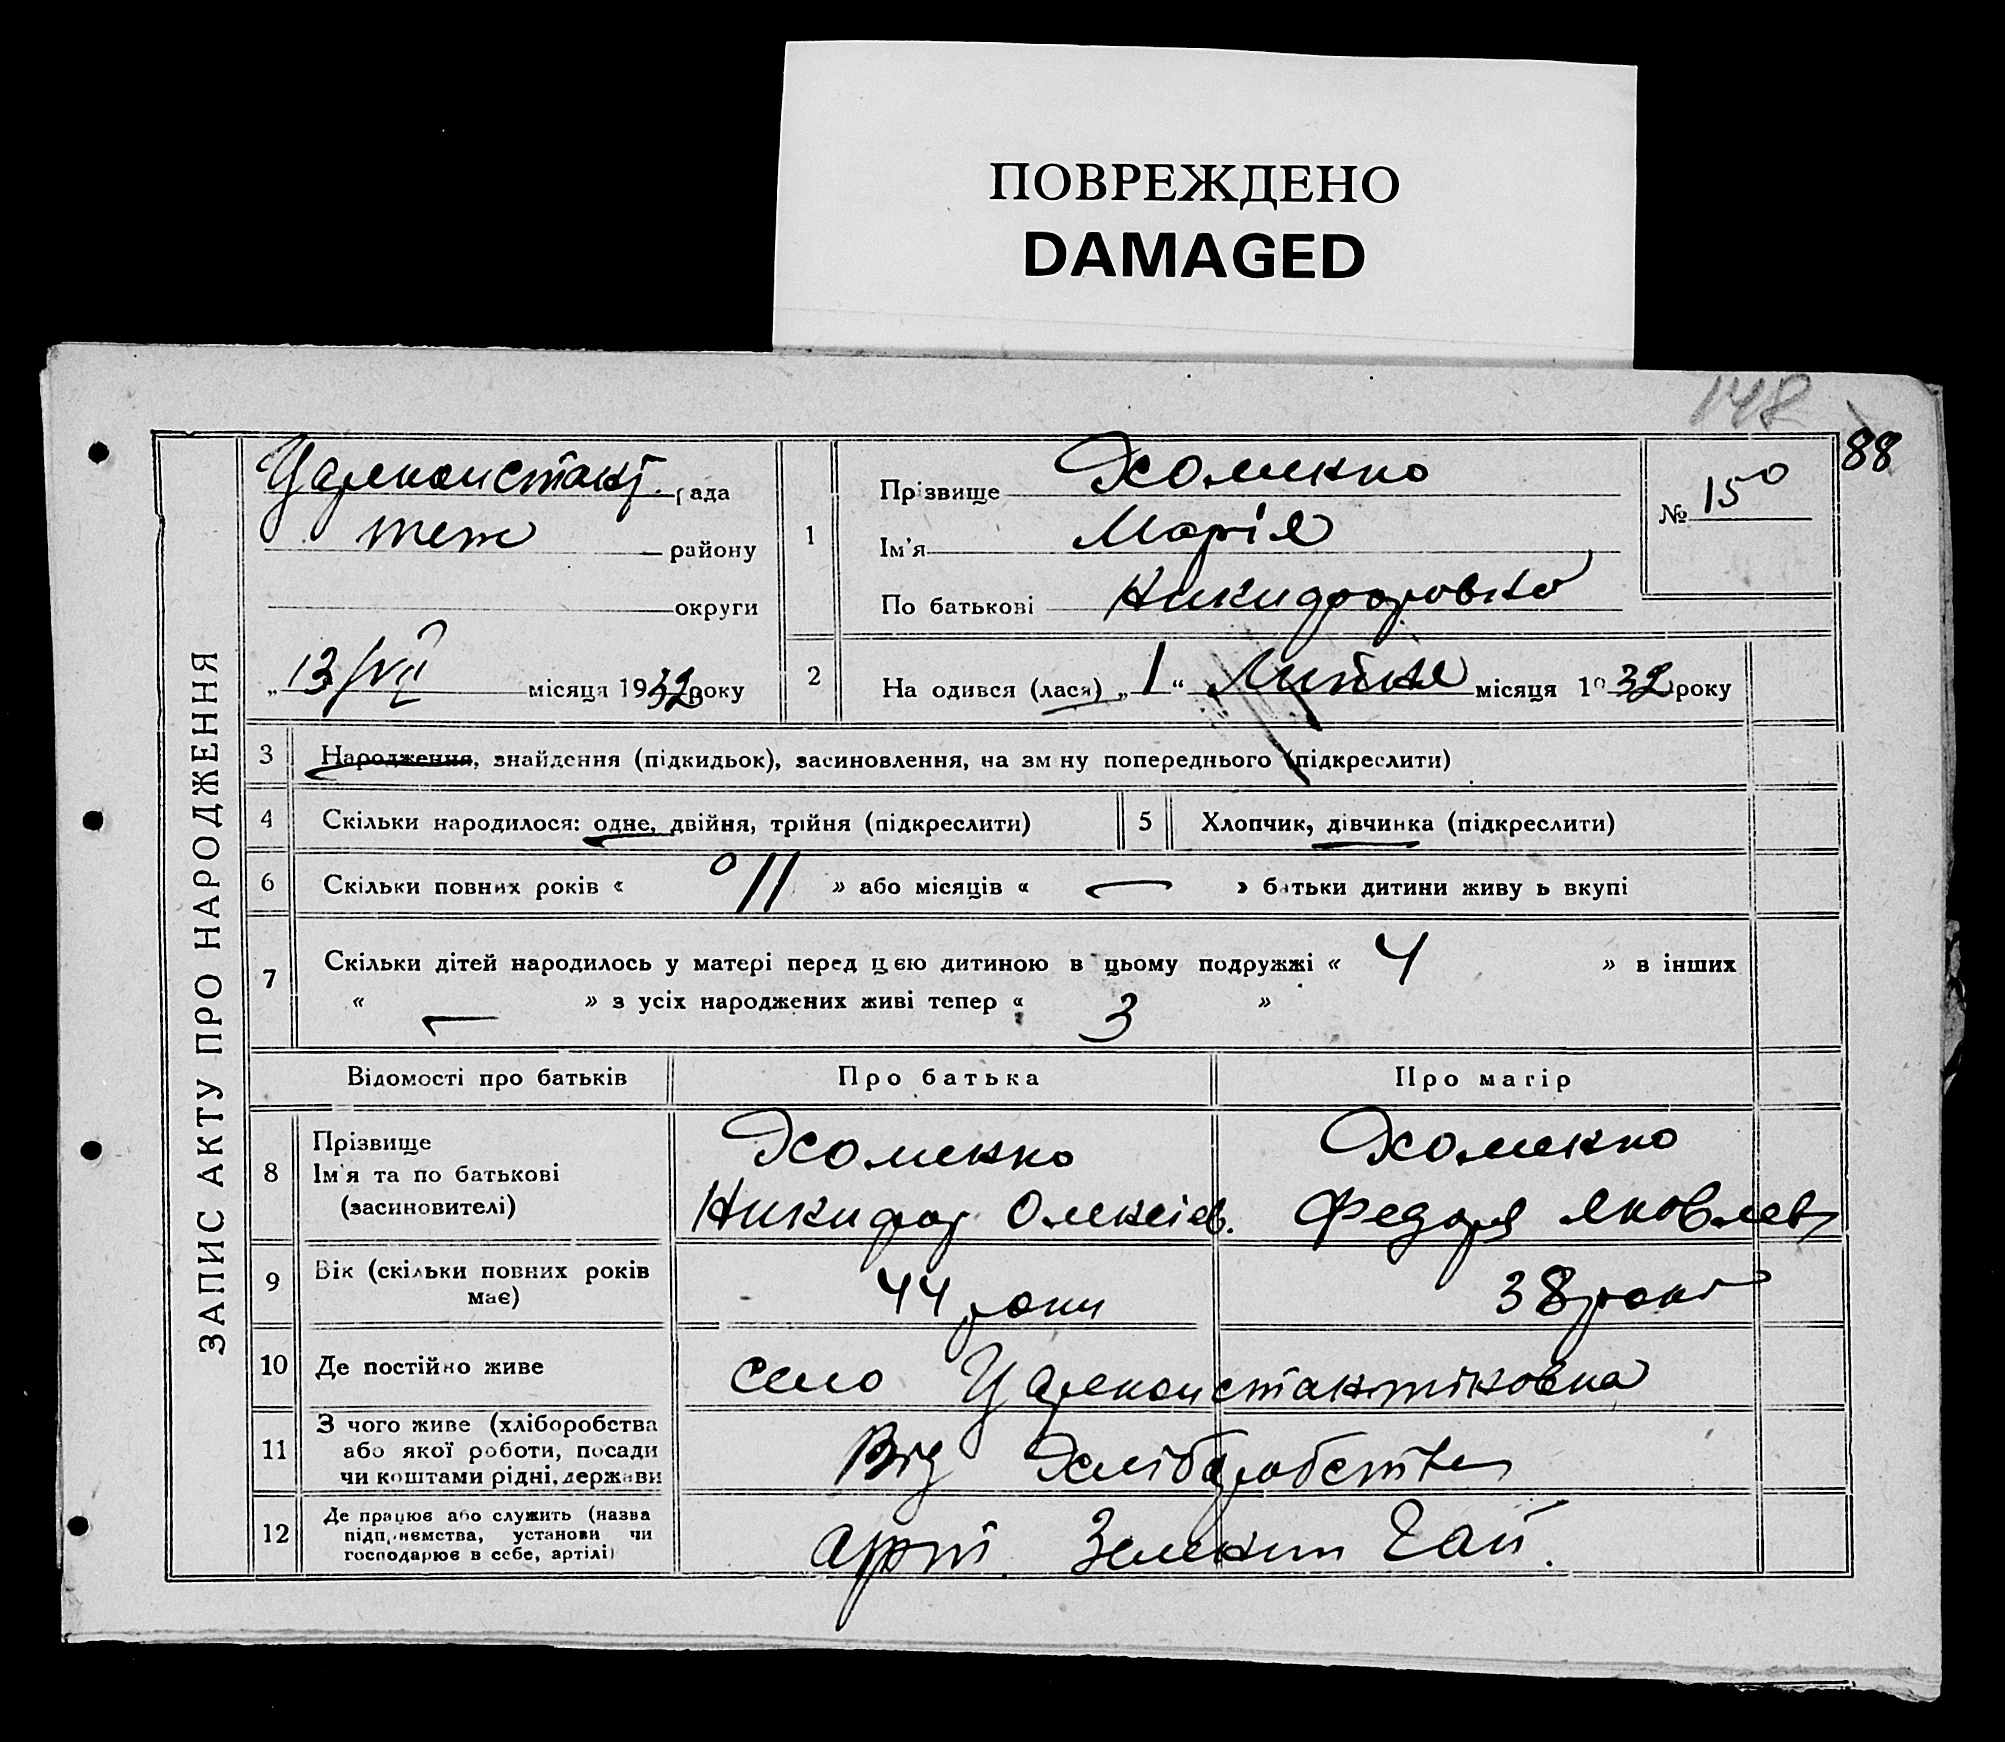 ПОВРЕЖДЕНО
DAMAGED
148
88
ЗАПИС АКТУ ПРО НАРОДЖЕННЯ
Цареконстант. рада
теж району
округи
„13/VII місяця 1932 року
1
Прізвище Хоменко
Ім'я Марія
По батькові Никифоровна
№ 150
2
На одився (лася) „1“ Липня місяця 1932 року
3 Народження, знайдення (підкидьок), засиновлення, на зм ну попереднього (підкреслити)
4 Скільки народилося: одне, двійня, трійня (підкреслити)
5 Хлопчик, дівчинка (підкреслити)
6 Скільки повних років « 11 » або місяців « — » батьки дитини живу ь вкупі
7 Скільки дітей народилось у матері перед цєю дитиною в цьому подружжі « 4 » в інших
« — » з усіх народжених живі тепер « 3 »
Відомості про батьків Про батька Про матір
8 Прізвище Хоменко Хоменко
Ім'я та по батькові Никифор Олексієв. Федора Яковлев
(засиновителі)
9 Вік (скільки повних років має) 44 роки 38 років
10 Де постійно живе село Цареконстантіновка
11 З чого живе (хліборобства
або якої роботи, посади
чи коштами рідні, держави
Від Хліборобства
12 Де працює або служить (назва
підприємства, установи чи
господарює в себе, артілі)
арт. Зелений Гай.